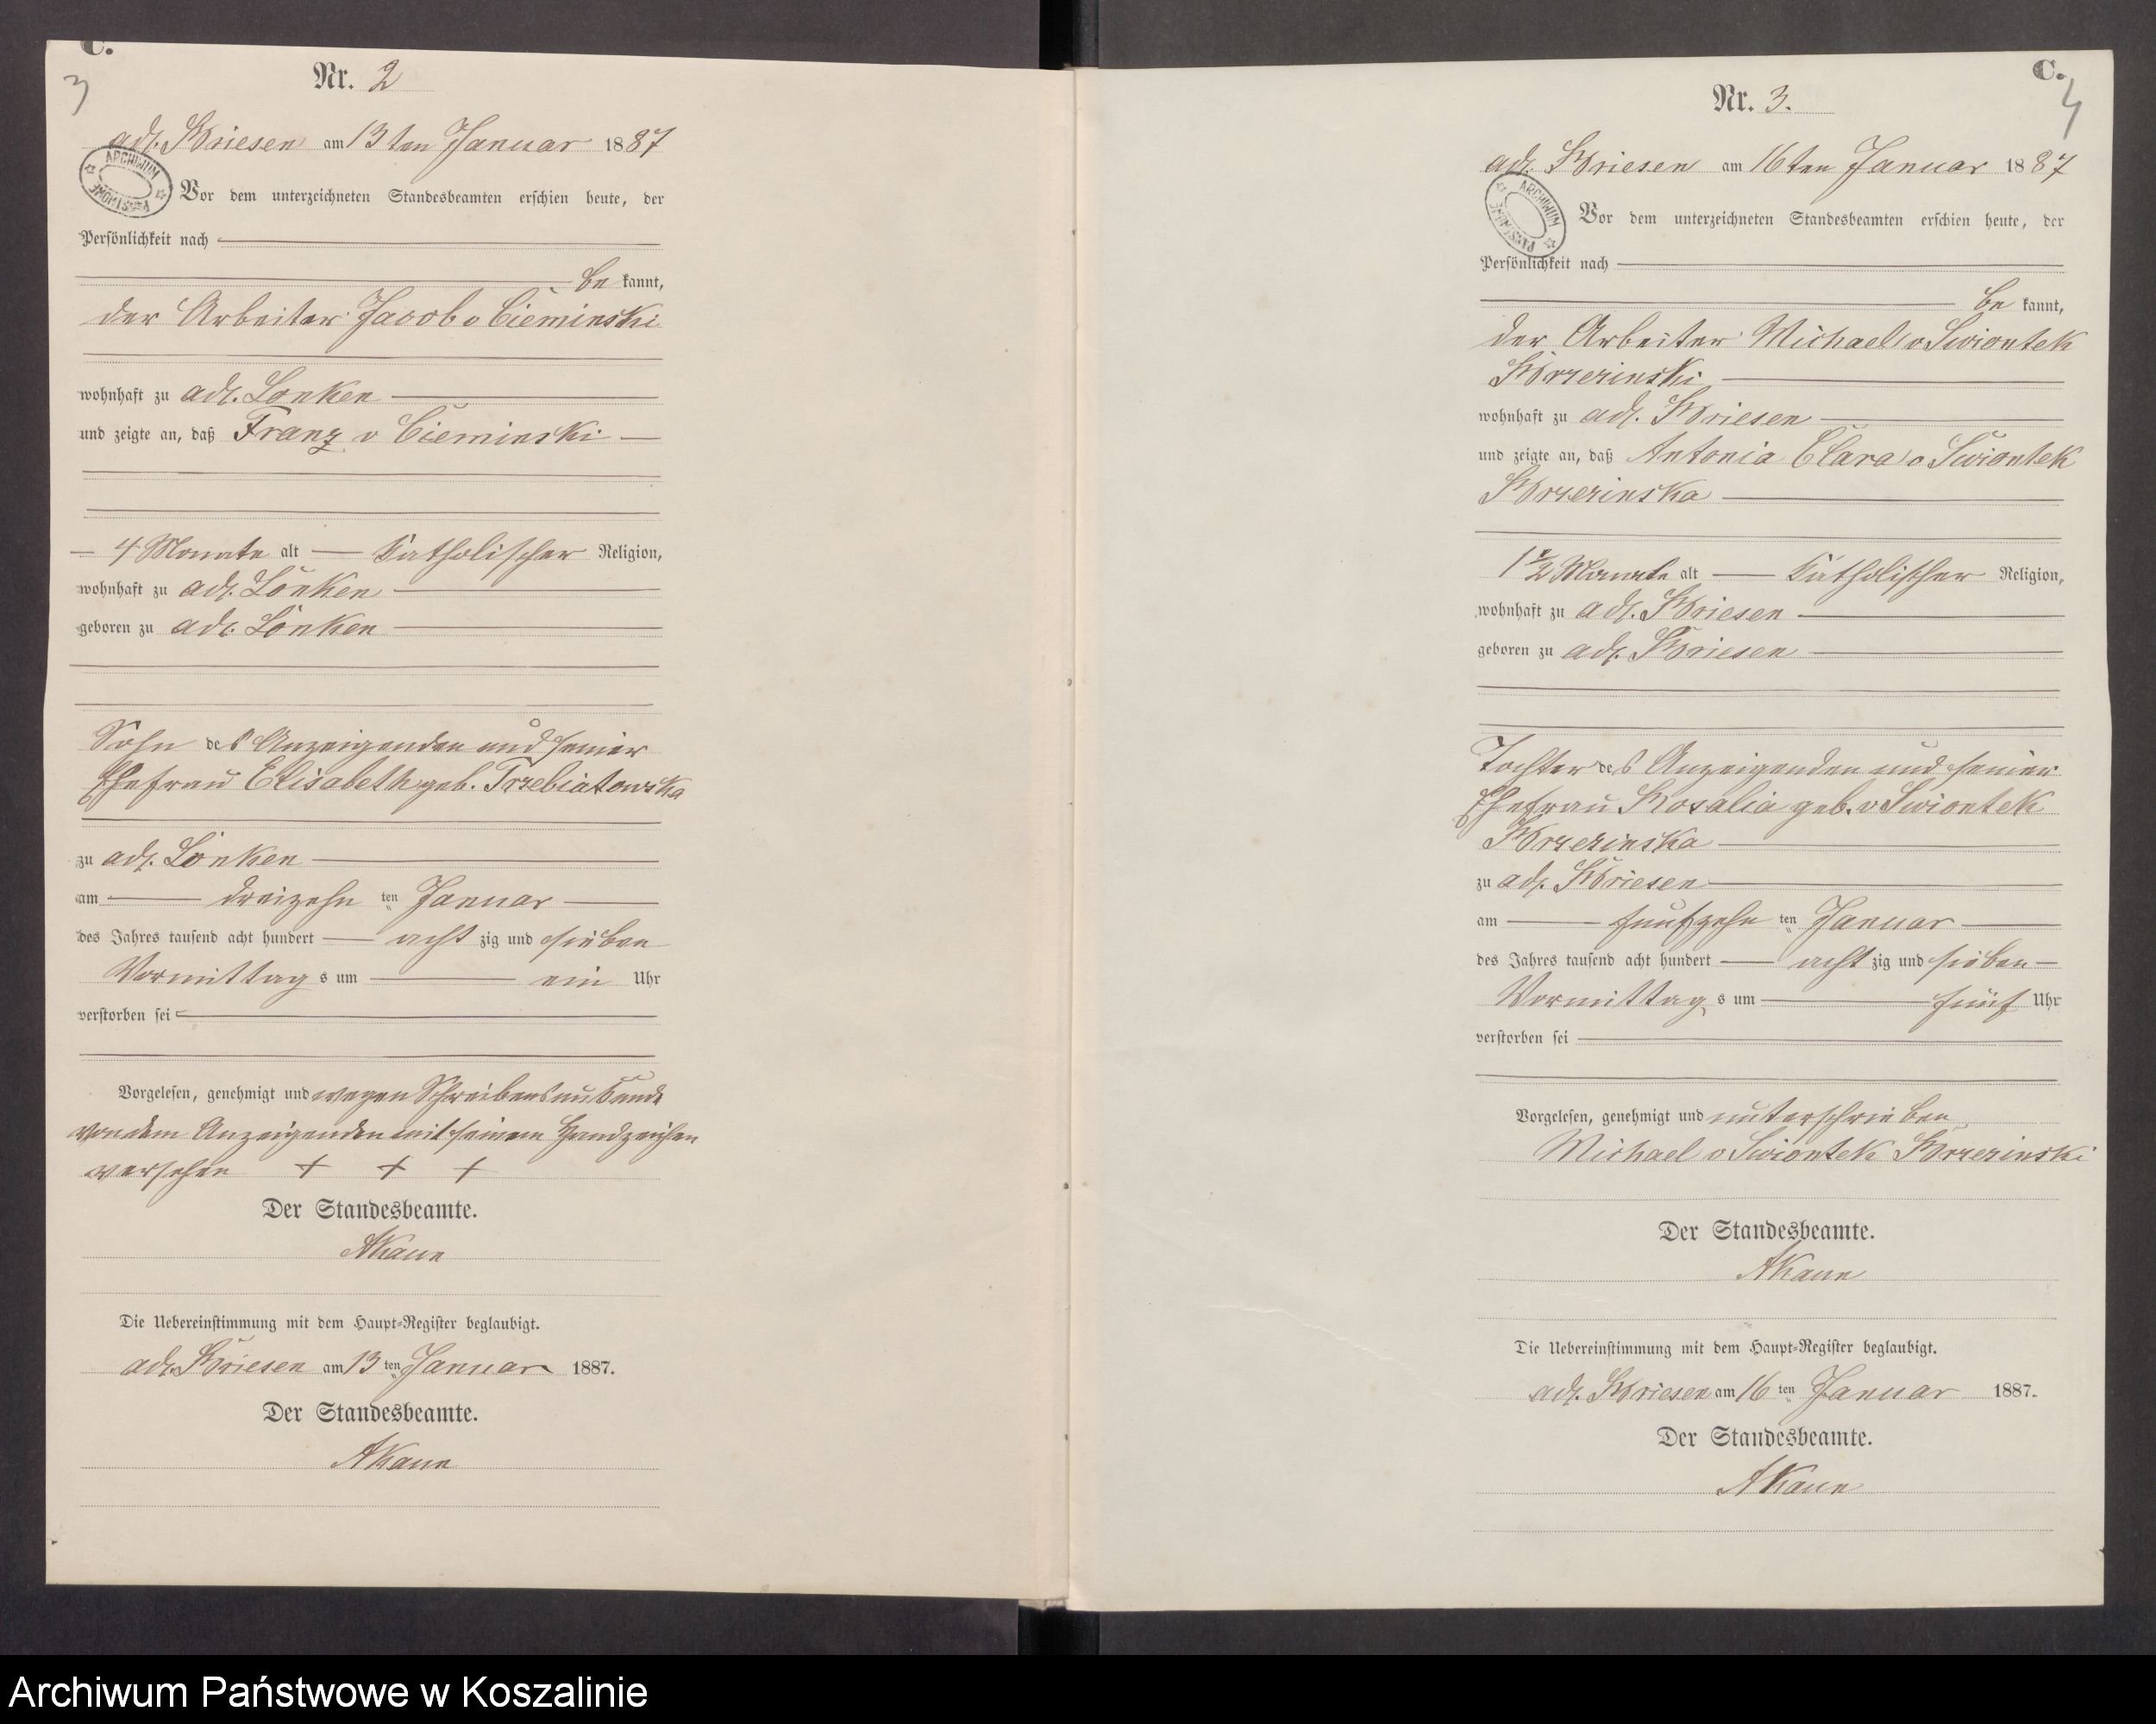 C.
3
Nr. 2
adl. Briesen am 13ten Januar 1887
ARCHIWUM PAŃSTWOWE
Vor dem unterzeichneten Standesbeamten erschien heute, der
Persönlichkeit nach
be kannt,
der Arbeiter Jacob v Cieminski
wohnhaft zu adl. Lonken
und zeigte an, daß Franz v Cieminski
4 Monate alt katholischer Religion,
wohnhaft zu adl. Lonken
geboren zu adl. Lonken
Sohn des Anzeigenden und seiner
Ehefrau Elisabeth geb. Trzebiatowska
zu adl. Lonken
am dreizehn ten Januar
des Jahres tausend acht hundert acht zig und sieben
Vormittag s um ein Uhr
verstorben sei
Vorgelesen, genehmigt und wegen Schreibensunkunde
von dem Anzeigenden mit seinem Handzeichen
versehen + + +
Der Standesbeamte.
AKaun
Die Uebereinstimmung mit dem Haupt-Register beglaubigt.
adl. Briesen am 13 ten Januar 1887.
Der Standesbeamte.
AKaun
C.
4
Nr. 3.
adl. Briesen am 16ten Januar 1887
ARCHIWUM PAŃSTWOWE
Vor dem unterzeichneten Standesbeamten erschien heute, der
Persönlichkeit nach
be kannt,
der Arbeiter Michael v Swiontek
Brzezinski
wohnhaft zu adl. Briesen
und zeigte an, daß Antonia Clara v Swiontek
Brzezinska
1 1/2 Monate alt katholischer Religion,
wohnhaft zu adl. Briesen
geboren zu adl. Briesen
Tochter des Anzeigenden und seiner
Ehefrau Rosalia geb. v Swiontek
Brzezinska
zu adl. Briesen
am fünfzehn ten Januar
des Jahres tausend acht hundert acht zig und sieben
Vormittag s um fünf Uhr
verstorben sei
Vorgelesen, genehmigt und unterschrieben
Michael v Swiontek Brzezinski
Der Standesbeamte.
AKaun
Die Uebereinstimmung mit dem Haupt-Register beglaubigt.
adl. Briesen am 16 ten Januar 1887.
Der Standesbeamte.
AKaun
Archiwum Państwowe w Koszalinie